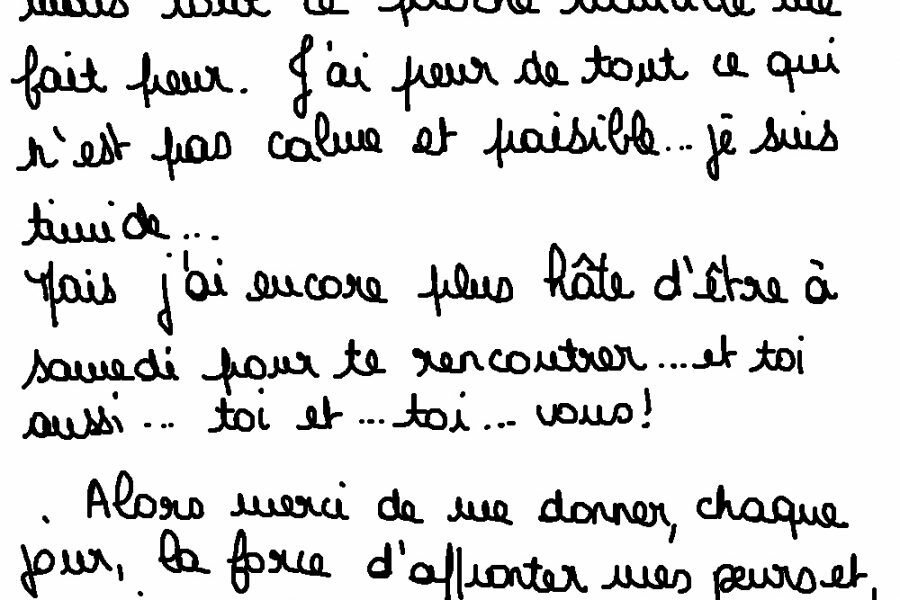 mais tout ce proche
fait peur. J'ai peur de tout ce qui
n'est pas calme et paisible... je suis
timide...
Mais j'ai encore plus hâte d'être à
samedi pour te rencontrer... et toi
aussi... toi et... toi... vous!
. Alors merci de me donner, chaque
jour, la force d'affronter mes peurs et,